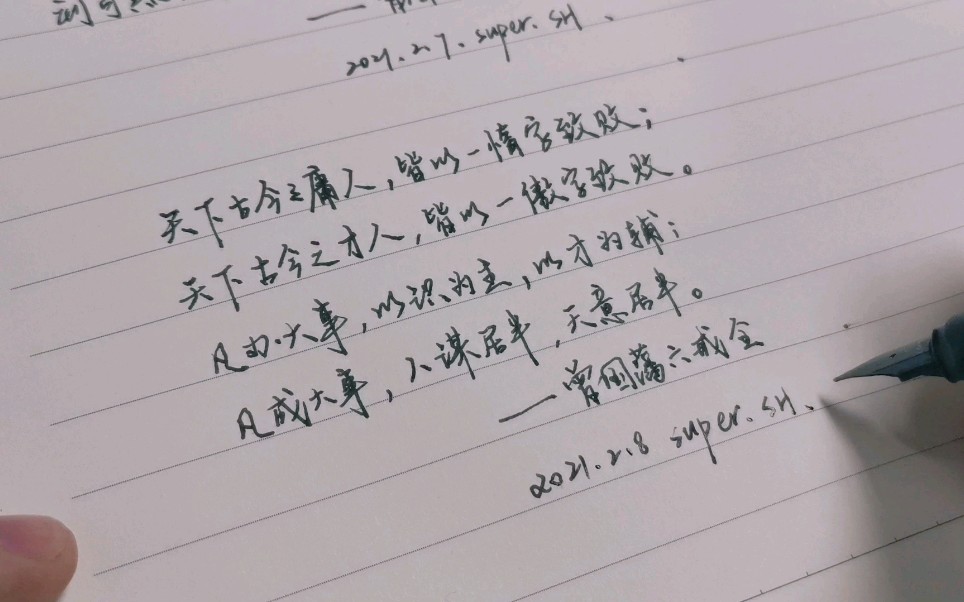 2021.2.7. super. SH.
天下古今之庸人,皆以一惰字致败;
天下古今之才人,皆以一傲字致败。
凡办大事,以识为主,以才为辅;
凡成大事,人谋居半,天意居半。
——曾国藩六戒全
2021.2.8 super. SH.